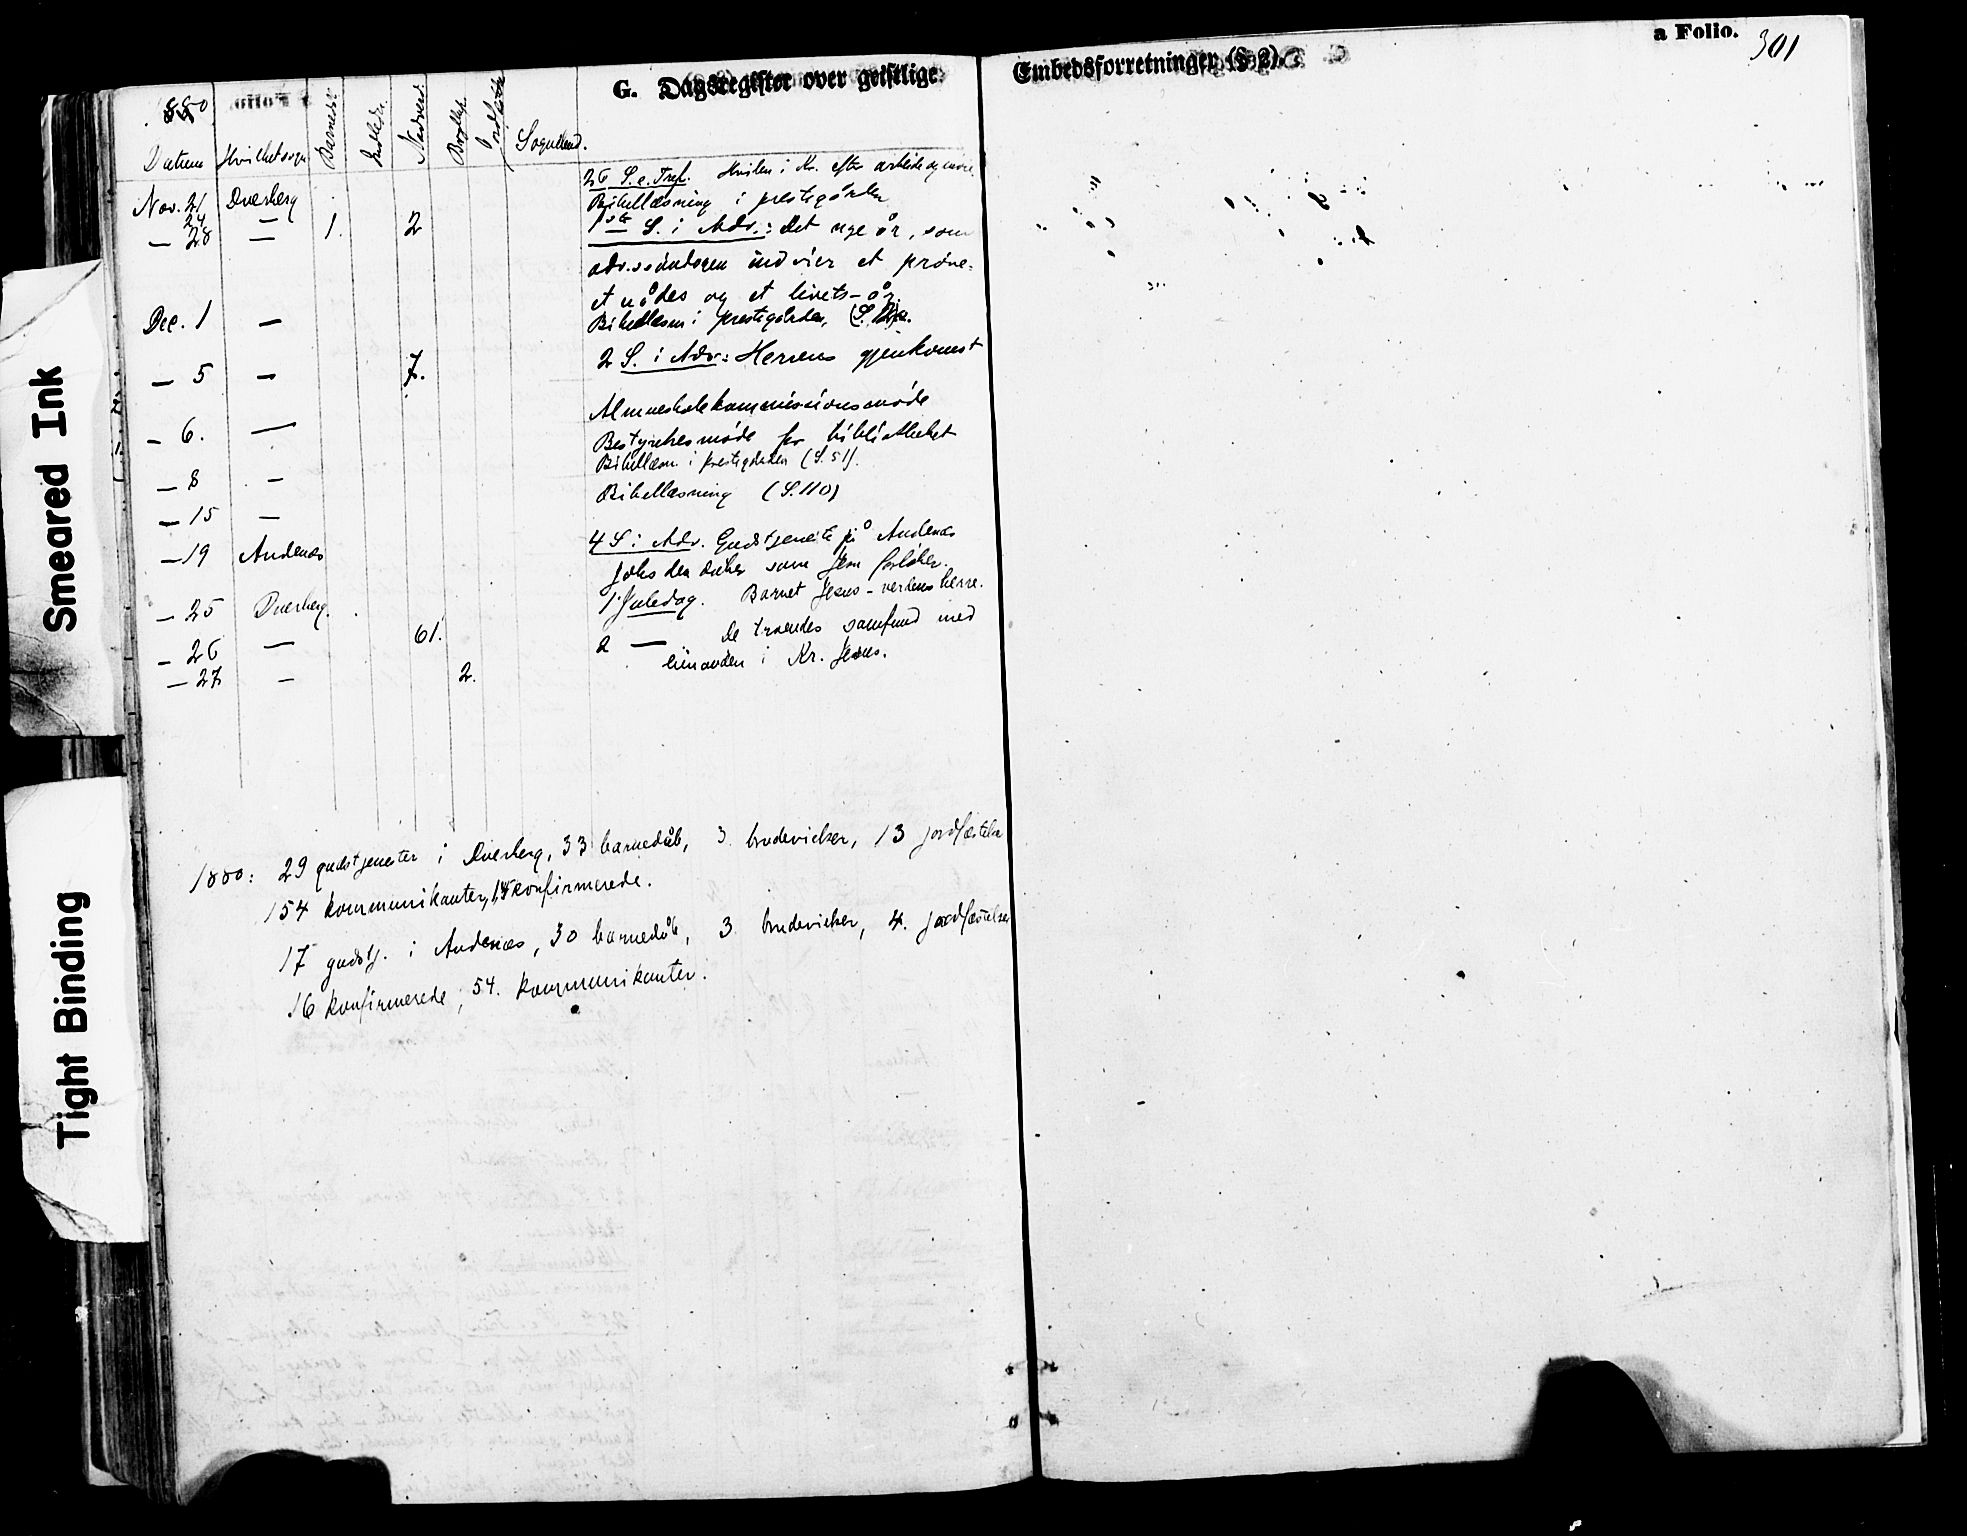 G. Dagsregister over geistlige Embedsforretninger (§ 2).
a Folio. 301
1880.
Datum Hvilket sogn Barnedåb Nadverd Bryllup
Nov. 21 Dverberg 26 S. e. Tref. Hvilen i Kr. efter arbeide og møie
24 — Bibellæsning i prestegården
— 28 — 1. 2 1ste S. i Adv.: Det nye år, som
adv.søndagen indvier et prøve-
et nådes og et livets-år.
Dec. 1 — Bibellæsn i prestegården,
— 5 — 7. 2 S. i Adv: Herrens gjenkomst
— 6. — Almueskolekommissionsmøde
Bestyrelsesmøde for bibliotheket
— 8 — Bibellæsn. i prestegården (S. 51).
— 15 — Bibellæsning (S. 110)
— 19 Andenæs 4 S i Adv. Gudstjeneste på Andenæs
Johs den døber som Jesu forløber.
— 25 Dverberg. 1 Juledag. Barnet Jesus - verdens herre.
— 26 — 61. 2 — De troendes samfund med
hinanden i Kr. Jesus.
— 27 — 2.
1880: 29 gudstjenester i Dverberg, 33 barnedåb, 3 brudevielser, 13 jordfæstelser
154 kommunikanter, konfirmerede.
17 gudstj. i Andenæs, 30 barnedåb, 3 brudevielser, 4. jordfæstelser
16 konfirmerede, 54. kommunikanter.
Smeared Ink
Tight Binding